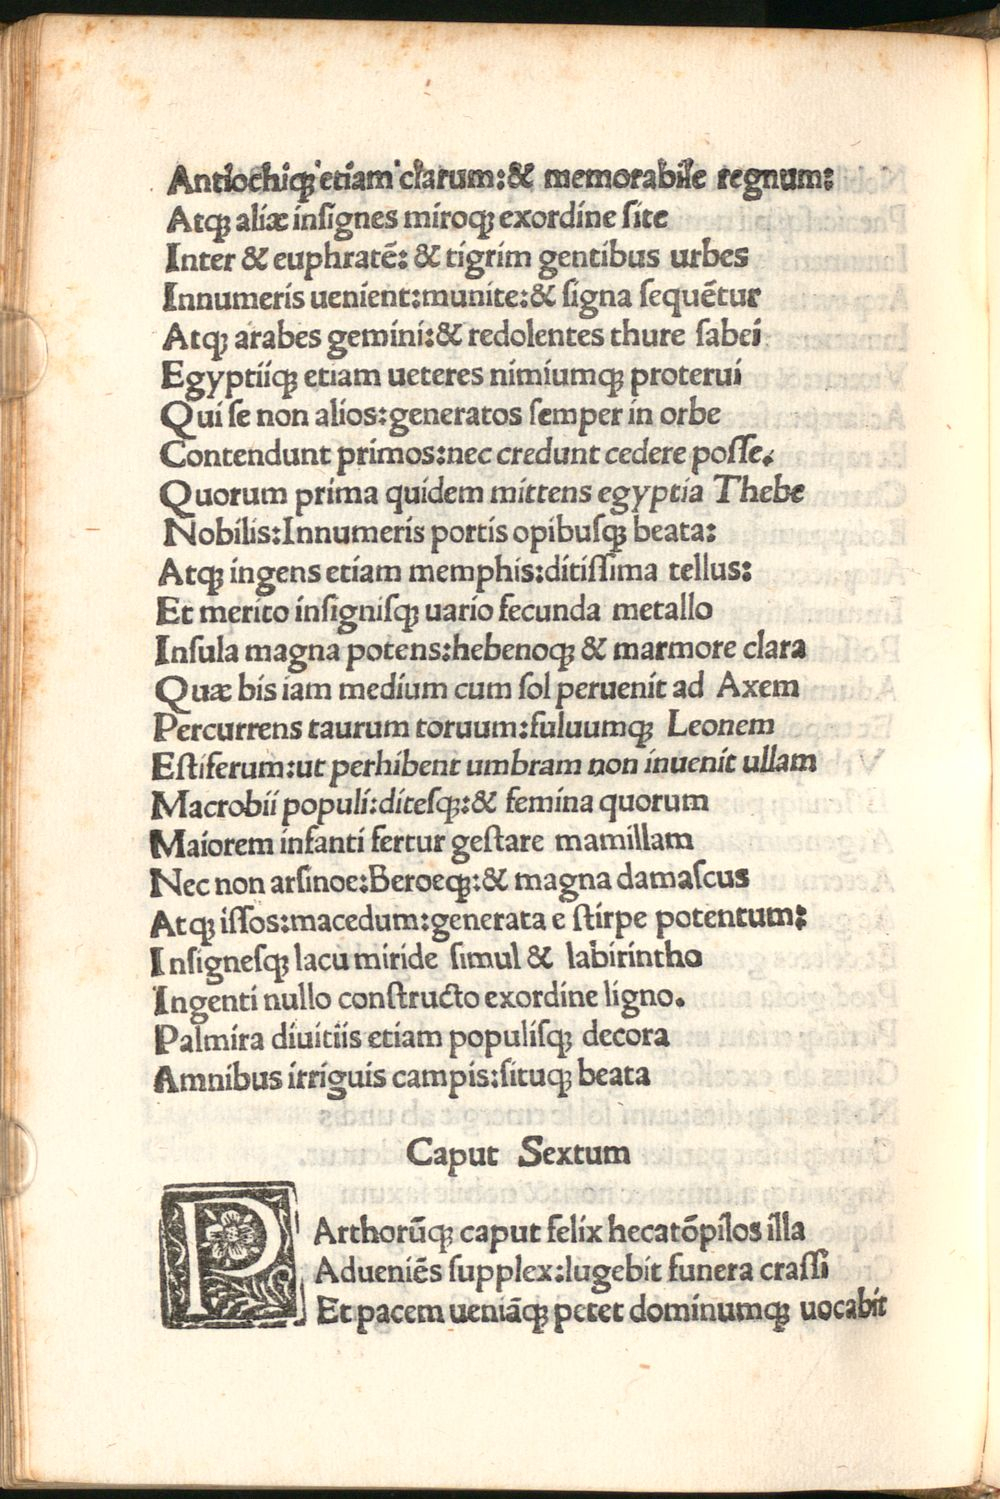 Antiochiqꝫ etiam clarum:& memorabile regnum:
Atqꝫ aliæ insignes miroqꝫ exordine site
Inter & euphratē: & tigrim gentibus urbes
Innumeris uenient:munite:& signa sequētur
Atqꝫ arabes gemini:& redolentes thure sabei
Egyptiiqꝫ etiam ueteres nimiumqꝫ proterui
Qui se non alios:generatos semper in orbe
Contendunt primos:nec credunt cedere posse.
Quorum prima quidem mittens egyptia Thebe
Nobilis:Innumeris portis opibusqꝫ beata:
Atqꝫ ingens etiam memphis:ditissima tellus:
Et merito insignisqꝫ uario fecunda metallo
Insula magna potens:hebenoqꝫ & marmore clara
Quæ bis iam medium cum sol peruenit ad Axem
Percurrens taurum toruum:fuluumqꝫ Leonem
Estiferum:ut perhibent umbram non inuenit ullam
Macrobii populi:ditesqꝫ:& femina quorum
Maiorem infanti fertur gestare mamillam
Nec non arsinoe:Beroeqꝫ:& magna damascus
Atqꝫ issos:macedum:generata e stirpe potentum:
Insignesqꝫ lacu miride simul & labirintho
Ingenti nullo constructo exordine ligno.
Palmira diuitiis etiam populisqꝫ decora
Amnibus irriguis campis:situqꝫ beata
Caput Sextum
PArthorūqꝫ caput felix hecatōpilos illa
Adueniēs supplex:lugebit funera crassi
Et pacem ueniāqꝫ petet dominumqꝫ uocabit